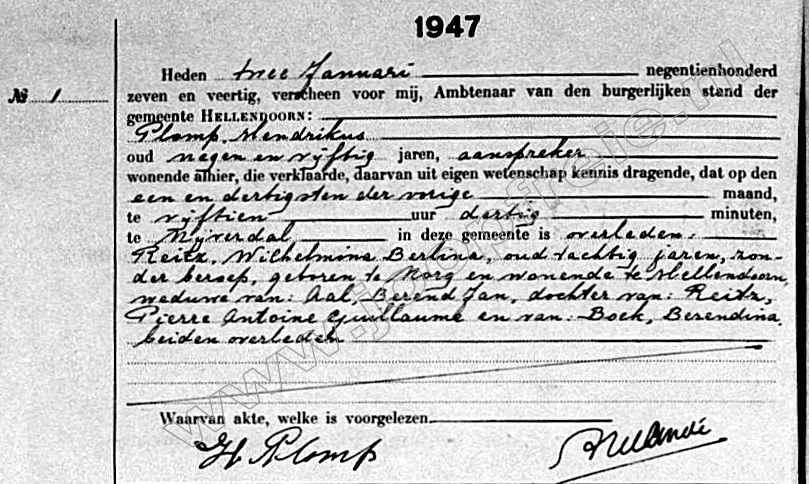 1947
Heden twee Januari negentienhonderd
№ 1
zeven en veertig, verscheen voor mij, Ambtenaar van den burgerlijken stand der
gemeente HELLENDOORN:
Plomp, Hendrikus
oud negen en vijftig jaren, aanspreker
wonende alhier, die verklaarde, daarvan uit eigen wetenschap kennis dragende, dat op den
een en dertigsten der vorige maand,
te vijftien uur dertig minuten,
te Nijverdal, in deze gemeente is overleden:
Reitz, Wilhelmina Berlina, oud tachtig jaren, zon-
der beroep, geboren te Norg en wonende te Hellendoorn,
weduwe van: Aal, Berend Jan, dochter van: Reitz,
Pierre Antoine Guillaume en van: Boek, Berendina,
beiden overleden
Waarvan akte, welke is voorgelezen.
H Plomp